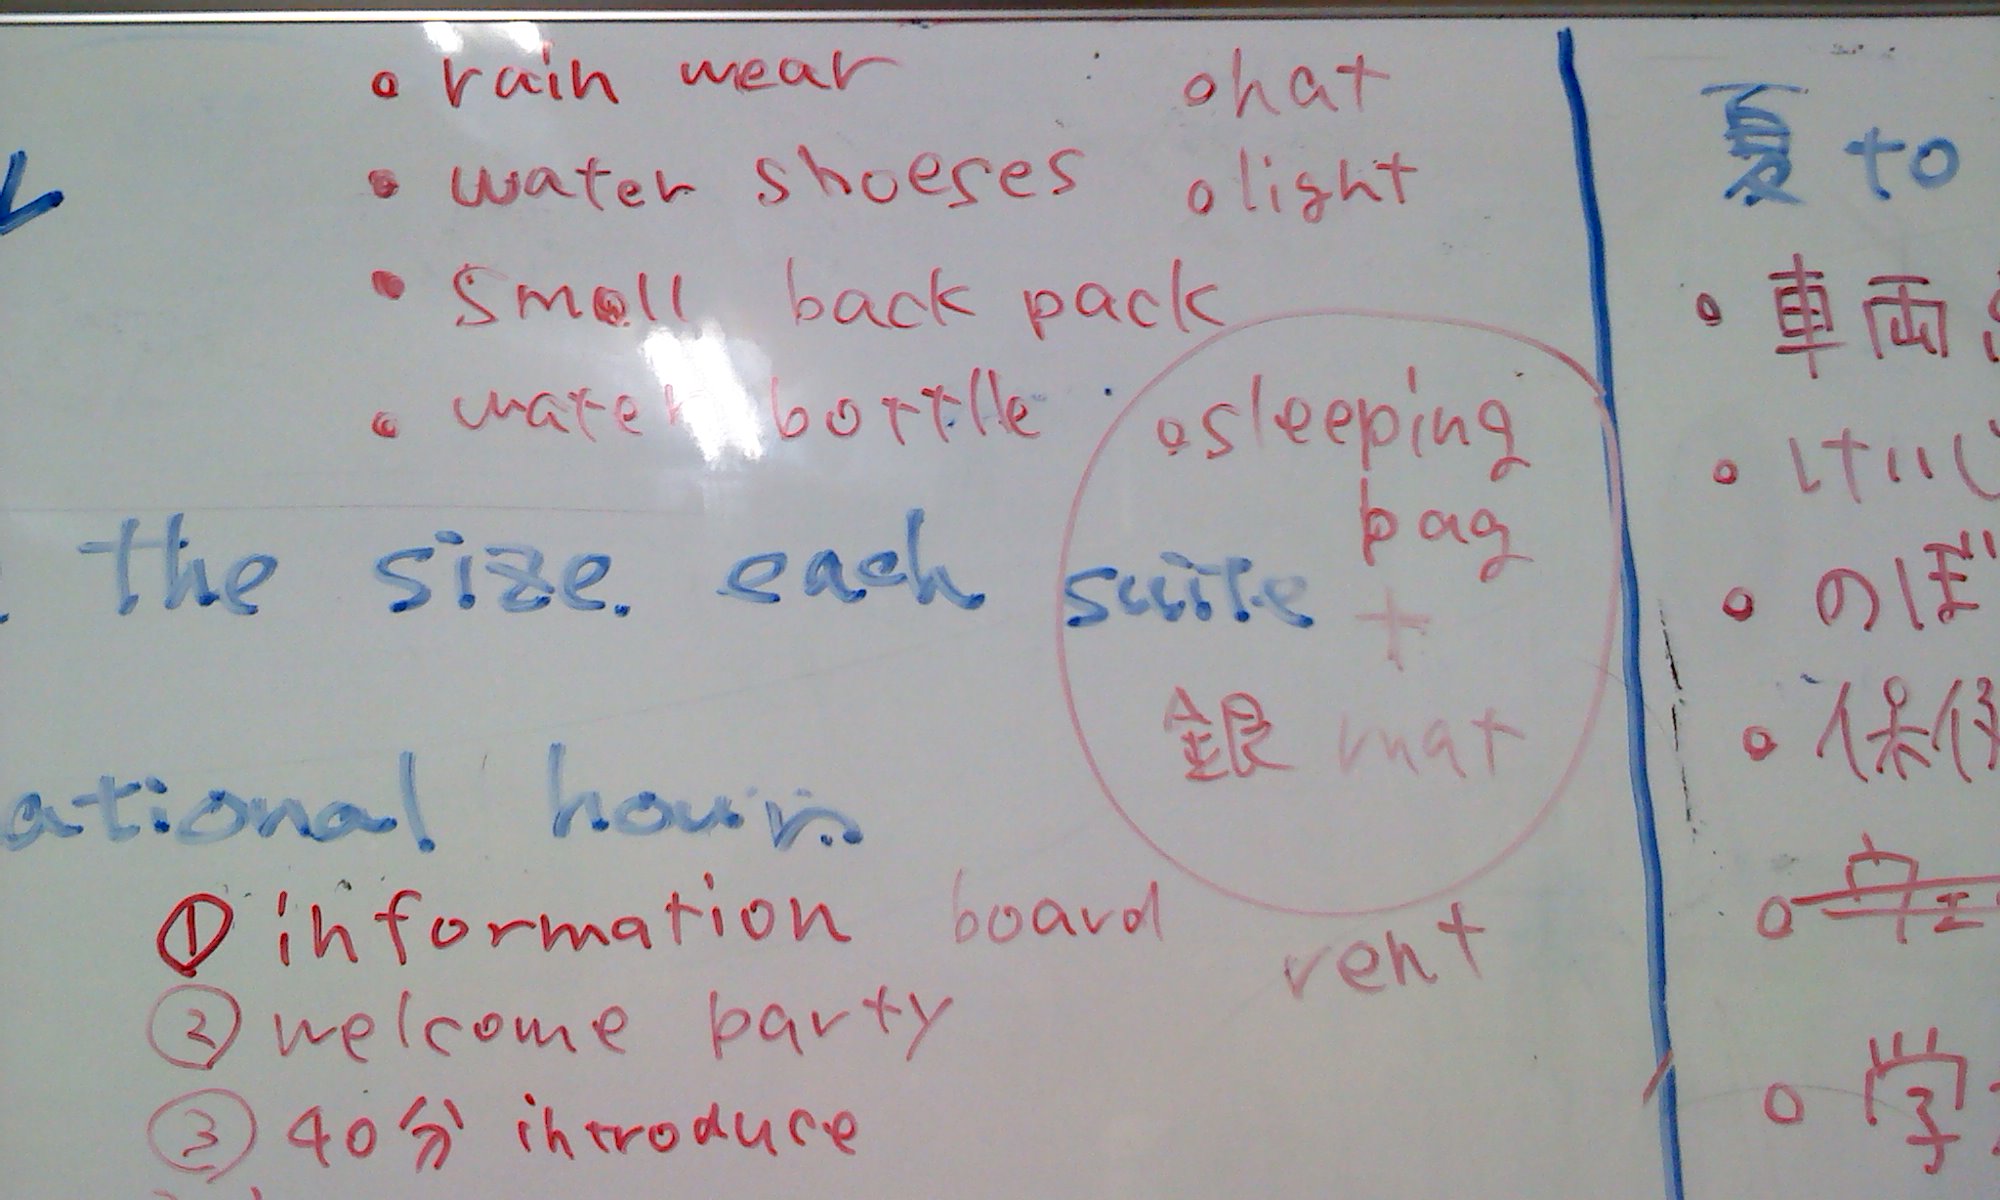 • rain wear
• water shoeses
• small back pack
• water bottle
○ hat
○ light
○ sleeping
bag
+
銀 mat
rent
the size. each suite
ational hours
① information board
② welcome party
③ 40分 introduce
夏 to
○ 車両
○ けい
○ のぼ
○ 保修
○ 学